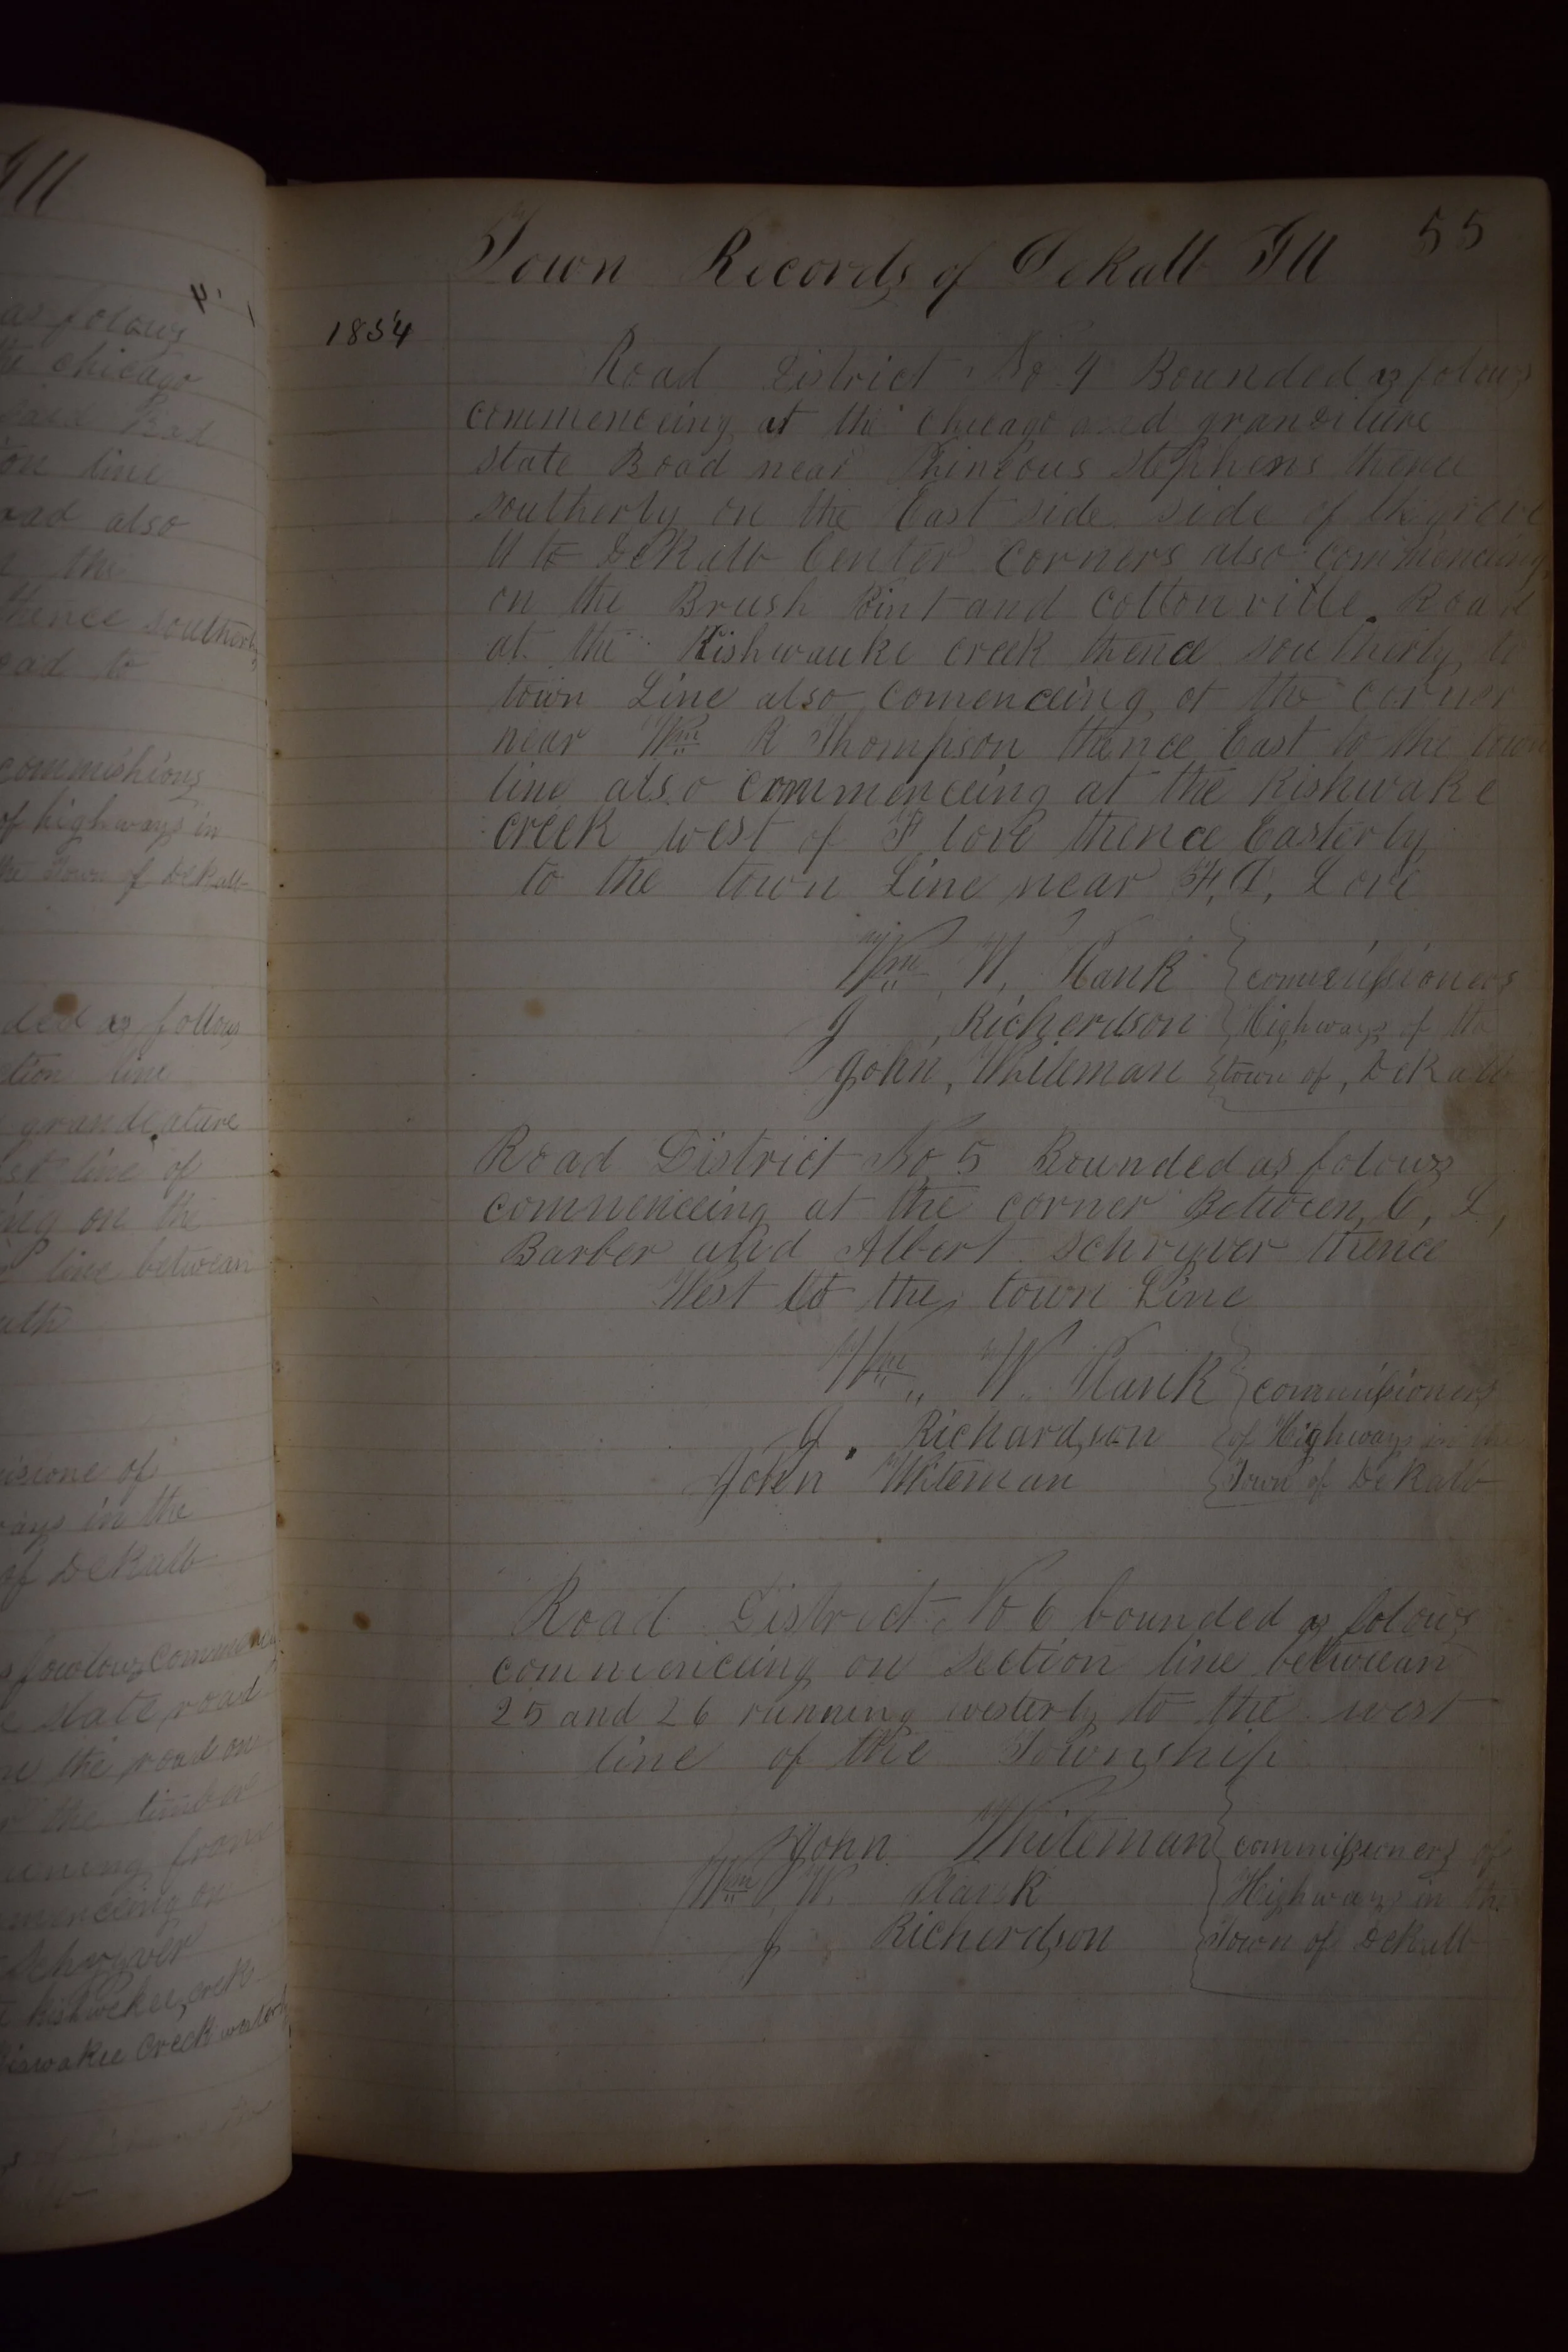 Ill
as folows
the chicago
said Road
on line
road also
the
thence southerly
road to
commishions
of highways in
the Town of DeKalb
ded as follows
ction line
grandeature
st line of
ing on the
line betwean
uth
isione of
ways in the
of DeKalb
fowlows commenc
state road
the road on
the timber
uning from
mencing on
Schryver
creek
iswakee creek westerly
Town Records of DeKalb Ill 55
1854
Road District No 4 Bounded as folows
commenceing at the chicago and granditure
state Road near Phineous Stephens thence
southerly on the East side side of the grove
to DeKalb Center Corners also commenceing
on the Brush Point and Coltonville Road
at the Kishwauke creek thence southerly to
town Line also comenceing at the corner
near Wm R Thompson thence East to the town
line also commenceing at the Kishwake
creek west of F Love thence Easterly
to the town Line near H. A. Love
Wm W. Plank commissioners
J Richerdson Highways of the
John, Whiteman town of, DeKalb
Road District No 5 Bounded as folows
commenceing at the corner Between C, L,
Barber and Albert Schryver thence
West to the town Line
Wm W. Plank commissioners
J. Richardson of Highways in the
John Whiteman Town of DeKalb
Road District No 6 bounded as folows
commenceing on section line betwean
25 and 26 running westerly to the west
line of the Township
John Whiteman commissioners of
Wm W. Plank Highways in the
J Richerdson Town of DeKalb